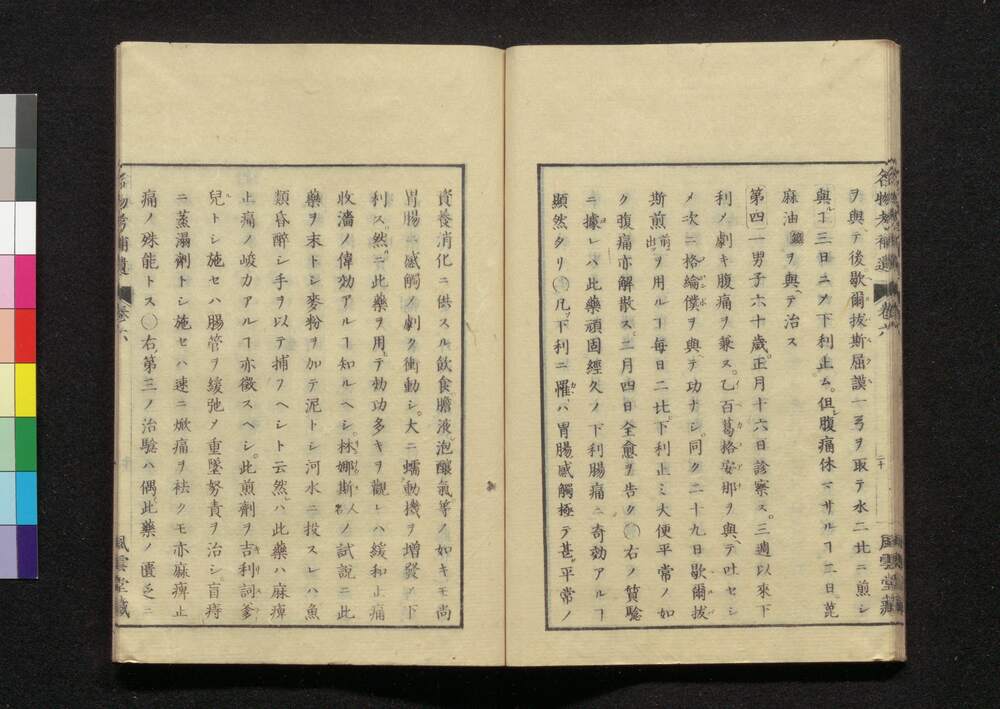 ヲ與ヘテ後歇爾拔斯屈謨一弓ヲ取テ水二比ニ煎シ
與ルヿ三日ニメ下利止ム。但シ腹痛休マサルヿ二日。蓖
麻油ヲ與ヘテ治ス
第四一男子六十歲。正月十六日診察ス。三週以來下
利メ劇キ腹痛ヲ兼ス。乙百葛格安那ヲ與ヘテ吐セシ
メ次ニ格綸僕ヲ與ヘテ功ナシ。同ク二十九日歇爾拔
斯煎前出ヲ用ルヿ每日二比。下利止ミ大便平常ノ如
ク腹痛亦解散ス。二月四日全愈ヲ告ク〇右ノ實驗
ニ據レハ此藥頑固經久ノ下利腸痛ニ奇効アルヿ
顯然タリ〇凡ソ下利ニ罹レハ胃腸感觸極テ甚シ。平常ノ
資養消化ニ供スル飲食膽液泡釀氣等ノ如キモ尚
胃腸ニ感觸ノ劇ク衝動シ。大ニ蠕動機ヲ增發メ下
利ス。然ルニ此藥ヲ用ヒテ効功多キヲ觀レハ緩和止痛
收濇ノ偉効アルヿ知ルヘシ。林娜斯人名ノ試說ニ此
藥ヲ末トシ麥粉ヲ加テ泥トシ河水ニ投スレハ魚
類昏醉シ手ヲ以テ捕フヘシト云然レハ此藥ハ麻痺
止痛ノ峻力アルヿ亦徵スヘシ。此煎劑ヲ吉利詞爹
兒トシ施セハ腸管ヲ緩弛メ重墜努責ヲ治シ。盲痔
ニ蒸溻劑トシ施セハ速ニ焮痛ヲ袪クモ亦麻痺止
痛ノ殊能トス〇右第三ノ治驗ハ偶此藥ノ匱乏ニ
卷六
風雲堂藏
卷六
風雲堂藏